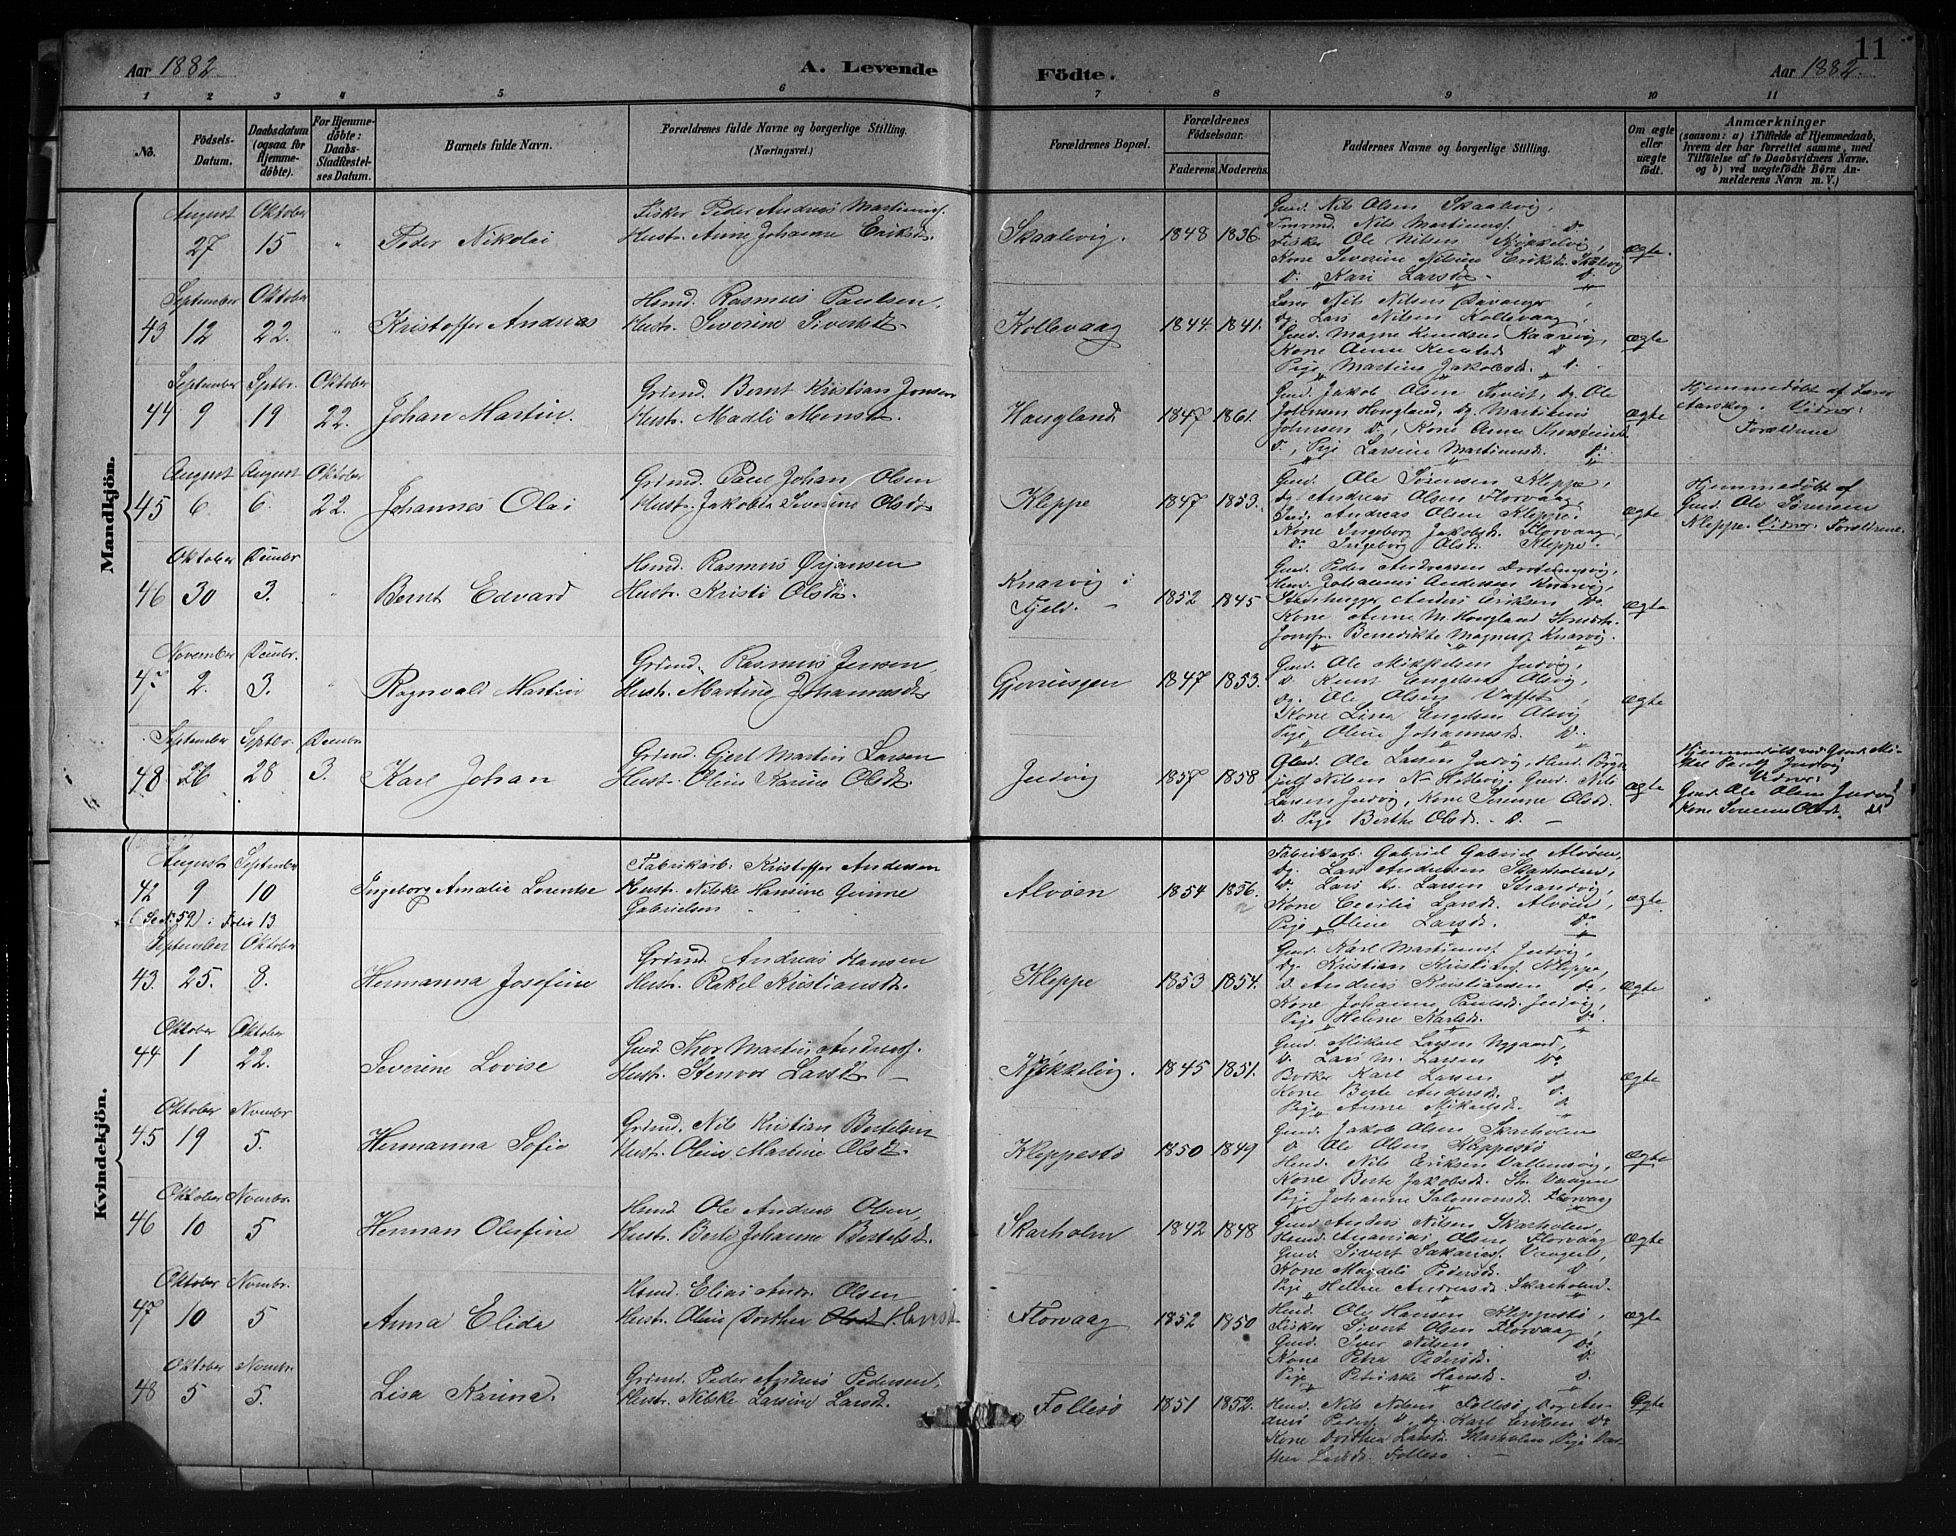 Aar 1882. A. Levende Födte. Aar 1882. 11
1 2 3 4 5 6 7 8 9 10 11
No. Födsels-Datum. Daabsdatum (ogsaa for Hjemmedöbte). For Hjemmedöbte: Daabs-Stadfæstelses Datum. Barnets fulde Navn. Forældrenes fulde Navne og borgerlige Stilling. (Næringsvei.) Forældrenes Bopæl. Forældrenes Födselsaar. Faderens. Moderens. Faddernes Navne og borgerlige Stilling. Om ægte eller uægte födt. Anmærkninger (saasom: a) i Tilfælde af Hjemmedaab, hvem der har forrettet samme, med Tilföielse af to Daabsvidners Navne, og b) ved uægtefödte Börn Anmelderens Navn m. V.)
Mandkjön.
August Oktober
27 15 " Peder Nikolai
Fisker Peder Andreas Martinuss.
Hustr. Anne Johanne Eriksd.
Skaalevig. 1848 1836. ægte.
Gmd. Nils Olsen Skaalevig,
Nils Martinuss. Do
Fisker Ole Nilsen Kjøkkelvig,
Kone Severine Nilsine Eriksd. Skalevig
D. Kari Larsd. D.
September Oktober
43 12 22. " Kristoffer Andreas
Hsmd. Rasmus Paulsen,
Hustr. Severine Sivertsd.
Kollevaag 1844. 1841. ægte
Lærer Nils Nilsen Davanger,
Ug. Lars Nilsen Kollevaag,
Gmd. Magne Knudsen Kaarevig,
Kone Anna Knutsd. D
Pige Martine Jakobsd. D.
September Sptbr. Oktober
44 9 19 22. Johan Martin.
Grdmd. Bernt Kristian Jonsen
Hustr. Madli Monsd.
Haugland 1847 1861. ægte
Gmd. Jakob Olsen Tveit, Ug. Ole
Johnsen Hougland, Ug. Martinus
Johnsen D., Kone Anna
D., Pige Larsine Martinusd. D.
Hjemmedøbt af Lærer
Aarskog. Vidner:
Forældrene
August August Oktober
45 6 6. 22. Johannes Olai
Grdmd. Paul Johan Olsen
Hustr. Jakobia Severine Olsd.
Kleppe 1847 1853. ægte
Gmd. Ole Sørensen Kleppe,
Ug. Andreas Olsen Florvaag,
Andreas Olsen Kleppe,
Kone Ingeborg Jakobsd. Florvaag,
D. Ingeborg Olsd. Kleppe.
Hjemmedøbt af
Gmd. Ole Sørensen
Kleppe. Vidner: Forældrene
Oktober Dcmbr
46 30 3. " Bernt Edvard
Hsmd. Rasmus Ørjansen
Hustr. Kristi Olsd.
Knarvig i
Fjeld. 1852 1845 ægte
Gmd. Peder Andreassen
Hmd. Johannes Andersen Knarvig,
Stenhugger Anders Eriksen Do.
Kone Anna M. Hougland
Jomfr. Benedikte Magnus. Knarvig.
November Dcmbr.
47 2. 3. Ragnvald Martin
Grdmd. Rasmus Jensen,
Hustr. Martine Johannesd.
1847 1853. ægte
Gmd. Ole Mikkelsen Judvig,
D. Knut Engelsen Alvig,
Ug. Ole Olsen
Kone Lina Engelsen Alvig
Pige Oline Johannesd. D.
September Sptbr. Dcmbr
48 26 28 3. Karl Johan
Grdmd. Gjert Martin Larsen
Hustr. Oline Karine Olsd.
Judvig 1857 1858 ægte
Gmd. Ole Larsen Judvig, Hmd.
Nilsen N. Gmd. Nils
Larsen Judvig, Kone Serene Olsd.
D. Pige Berthe Olsd. D.
Hjemmedøbt ved Gmd. Mi-
Judvig
Vidner:
Gmd. Ole Olsen Judvig
Kone Serene Olsd. D
Kvindekjön.
August September
42 9 10 Ingeborg Amalia Lorentse
(Se No 59) i Folio 13
Fabrikarb. Kristoffer Andersen
Hustr. Nilske Hansine Gurine
Gabrielsen
Alvøen 1854 1856. ægte
Fabrikarb. Gabriel Gabriel. Alvøen,
Ug. Lars Andersen Skarholm,
D. Lars Larsen Strandvig,
Kone Cecilia Larsd. Alvøen,
Pige Oline Larsd. D.
September Oktober
43. 25. 8. Hermanna Josefine
Grdmd. Andreas Hansen
Hustr. Rakel Kristiansd.
Kleppe 1853 1854. ægte
Gmd. Karl Martinus. Judvig,
Ug. Kristian Kristians. Kleppe,
D. Andreas Kristiansen D.,
Kone Johanne Paulsd. Judvig,
Pige Helene Karlsd. D.
Oktober Oktober
44 1 22. Severine Lovise
Gmd. Thor Martin Andreas.
Hustr. Stenvor Larsd.
Kjøkkelvig. 1845 1851. ægte
Gmd. Mikael Larsen
D. Lars M. Larsen Do.
Karl Larsen D
Kone Berte Andersd. D.
Pige Anne Mikaelsd. D.
Oktober Novmber
45 19 5. Hermanna Sofie
Grdmd. Nils Kristian Bertelsen
Hustr. Oline Martine Olsd.
Kleppestø 1850 1849 ægte
Gmd. Jakob Olsen Skarholm
D. Ole Olsen Kleppestø
Hmd. Nils Eriksen
Kone Berte Jakobsd. Vaagen
Pige Johanne Salomonsd. Florvaag
Oktober Novmbr.
46 10 5 Herman Olefine
Hsmd. Ole Andreas Olsen,
Hustr. Berte Johanne Bertelsd.
Skarholm 1842 1848 ægte
Gmd. Anders Nilsen Skarholm,
Hsmd. Ananias Olsen Florvaag
Gmd. Sivert Sakarias.
Kone Magdeli Pedersd. D.
Pige Helene Andreasd. Skarholmd.
Oktober Novmbr.
47 10 5 Anna Elida
Hsmd. Elias Andr. Olsen
Hustr. Oline Dorthea Olsd Hansd
Florvaag 1852 1850 ægte
Hmd. Ole Hansen Kleppestø,
Fisker Sivert Olsen Florvaag,
Gmd. Iver Nilsen D.
Kone Petra Pedersd. D.
Pige Petrikke Hansd. D.
Oktober Novmbr
48 5 5. Lisa Karina.
Grdmd. Peder Andreas Pedersen,
Hustr. Nilske Larsine Larsd.
Follesø 1851 1852. ægte
Hmd. Nils Nilsen Follesø, Ug An-
dreas Peders. D. Ug. Karl Eriksen Do
Kone Dorthea Larsd. Skarholm Pige Dor-
thea Larsd. Follesø